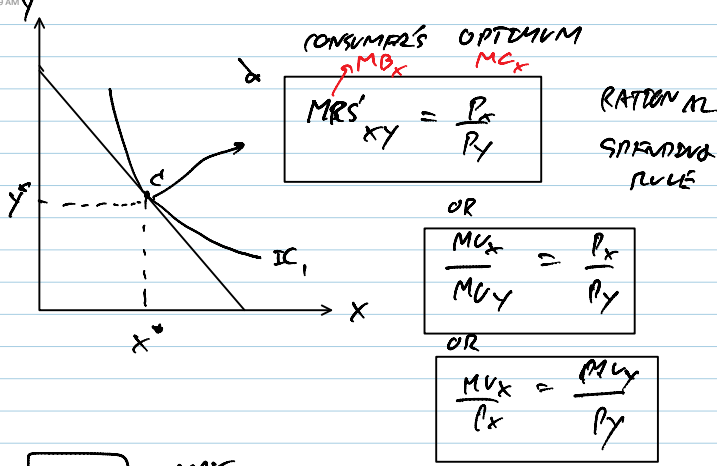 9 AM
Y
CONSUMER'S OPTIMUM
MBx MCx
MRS'xy = Px / Py
RATIONAL
SPENDING
RULE
C
Y*
IC1
X
X*
OR
MUx / MUy = Px / Py
OR
MUx / Px = MUy / Py